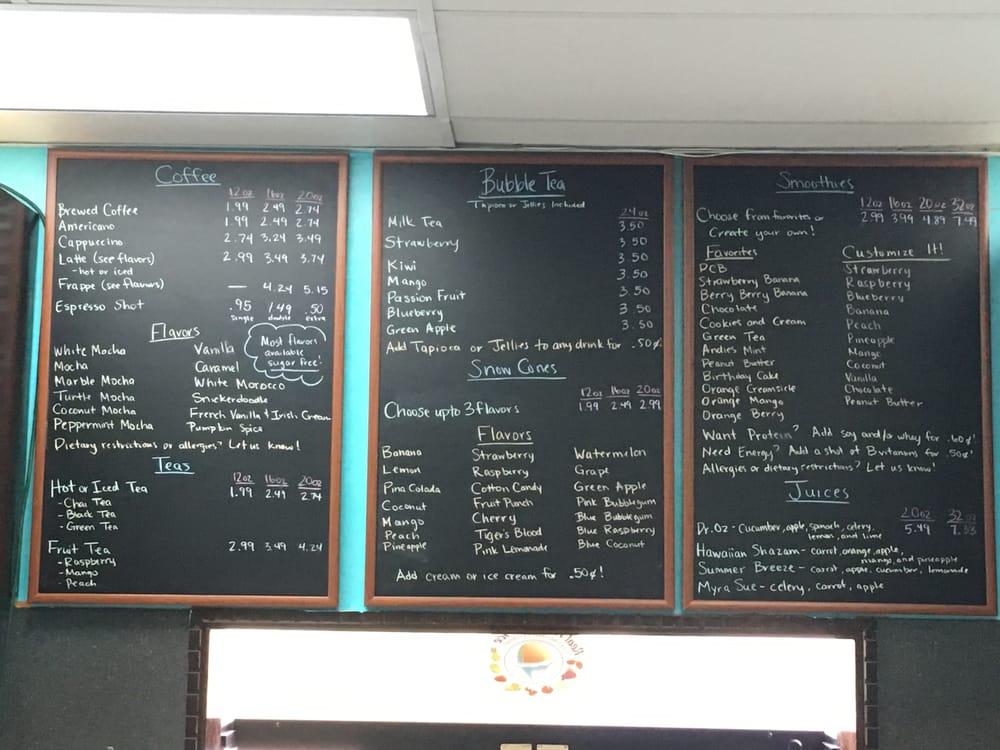 Coffee
12oz 16oz 20oz
Brewed Coffee 1.99 2.49 2.74
Americano 1.99 2.49 2.74
Cappuccino 2.74 3.24 3.49
Latte (see flavors) 2.99 3.49 3.74
-hot or iced
Frappe (see flavors) — 4.24 5.15
Espresso Shot .95 1.49 .50
single double extra
Flavors
White Mocha
Mocha
Marble Mocha
Turtle Mocha
Coconut Mocha
Peppermint Mocha
Vanilla
Caramel
White Morocco
Snickerdoodle
French Vanilla & Irish Cream
Pumpkin Spice
Most flavors
available
sugar free!
Dietary restrictions or allergies? Let us know!
Teas
12oz 16oz 20oz
Hot or Iced Tea 1.99 2.49 2.74
-Chai Tea
-Black Tea
-Green Tea
Fruit Tea 2.99 3.49 4.24
-Raspberry
-Mango
-Peach
Bubble Tea
Tapioca or Jellies Included
24oz
Milk Tea 3.50
Strawberry 3.50
Kiwi 3.50
Mango 3.50
Passion Fruit 3.50
Blueberry 3.50
Green Apple 3.50
Add Tapioca or Jellies to any drink for .50¢
Snow Cones
12oz 16oz 20oz
Choose upto 3 flavors 1.99 2.49 2.99
Flavors
Banana
Lemon
Pina Colada
Coconut
Mango
Peach
Pineapple
Strawberry
Raspberry
Cotton Candy
Fruit Punch
Cherry
Tiger's Blood
Pink Lemonade
Watermelon
Grape
Green Apple
Pink Bubblegum
Blue Bubblegum
Blue Raspberry
Blue Coconut
Add cream or ice cream for .50¢!
Smoothies
12oz 16oz 20oz 32oz
Choose from favorites or 2.99 3.99 4.89 7.49
Create your own!
Favorites
PCB
Strawberry Banana
Berry Berry Banana
Chocolate
Cookies and Cream
Green Tea
Andies Mint
Peanut Butter
Birthday Cake
Orange Creamsicle
Orange Mango
Orange Berry
Customize It!
Strawberry
Raspberry
Blueberry
Banana
Peach
Pineapple
Mango
Coconut
Vanilla
Chocolate
Peanut Butter
Want Protein? Add soy and/or whey for .60¢!
Need Energy? Add a shot of B vitamins for .50¢!
Allergies or dietary restrictions? Let us know!
Juices
20oz 32oz
Dr. Oz - Cucumber, apple, spinach, celery, 5.49
lemon, and lime
Hawaiian Shazam - carrot, orange, apple,
mango, and pineapple
Summer Breeze - carrot, apple, cucumber, lemonade
Myra Sue - celery, carrot, apple